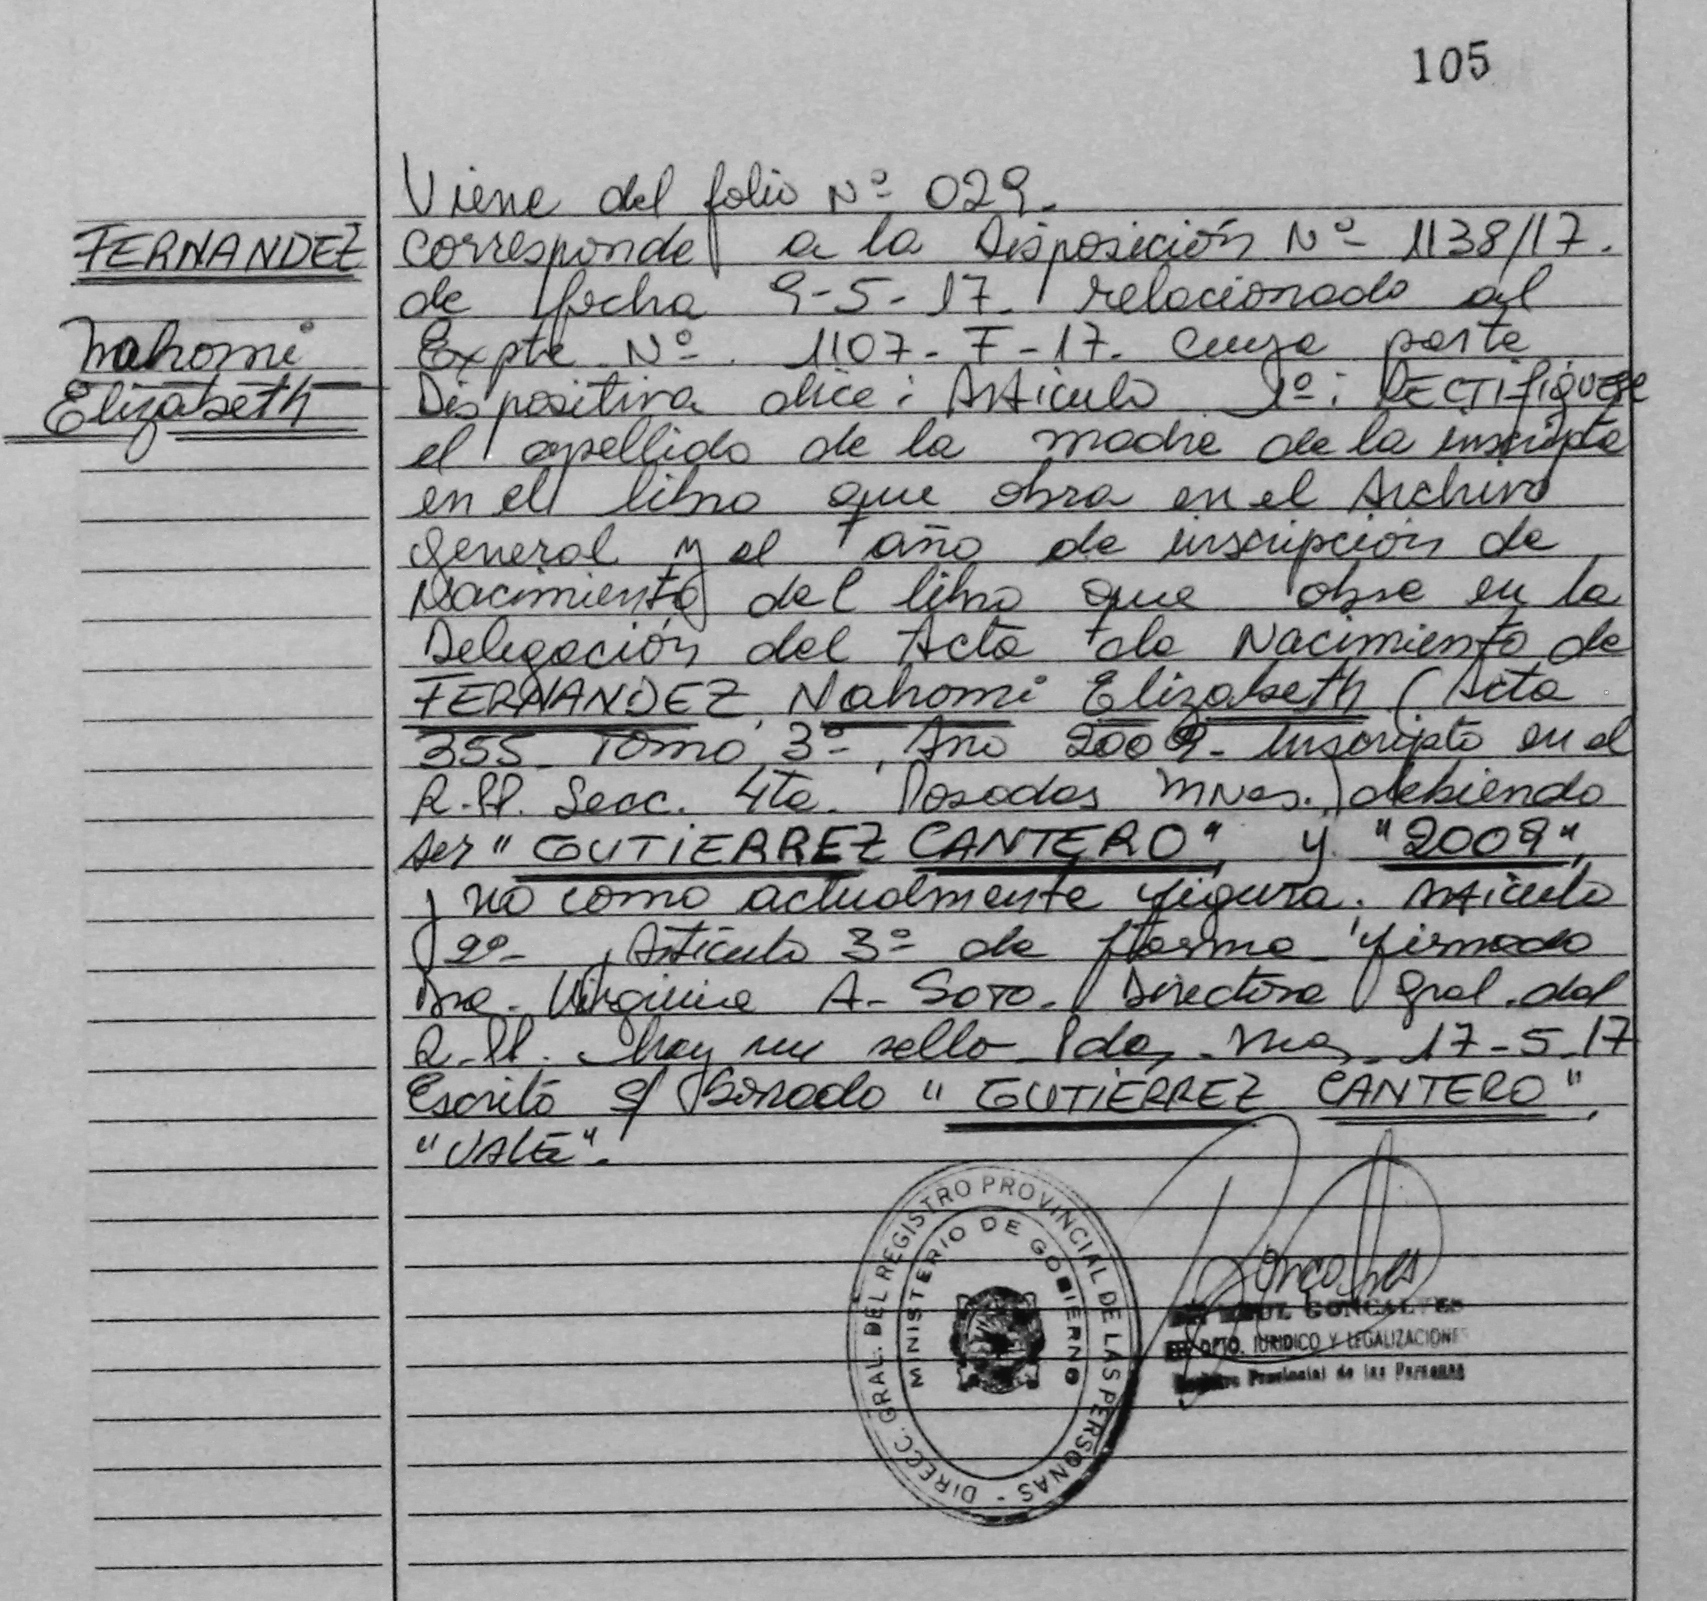 105
FERNANDEZ
Nahomi
Elizabeth
Viene del folio Nº 029.
Corresponde a la Disposición Nº 1138/17.
de fecha 9-5-17. relacionado al
Expte Nº. 1107-F-17. cuya parte
Dispositiva dice: Artículo 1º: RECTifiquese
el apellido de la madre de la inscripta
en el libro que obra en el Archivo
General y el año de inscripción de
Nacimiento del libro que obra en la
Delegación del Acta de Nacimiento de
FERNANDEZ, Nahomi Elizabeth (Acta
355 Tomo 3º, Año 2009- Inscripto en el
R.PP. Secc. 4ta. Posadas Mnes.) debiendo
ser "GUTIERREZ CANTERO" y "2009",
y no como actualmente figura. Artículo
2º- Artículo 3º de forma firmado
Dra. Virginia A- Soto. Directora Gral. del
R.PP. hay un sello Pdas, Mnes 17-5-17
Escrito s/ Borrado "GUTIERREZ CANTERO",
"VALE".
DIRECC. GRAL. DEL REGISTRO PROVINCIAL DE LAS PERSONAS -
MINISTERIO DE GOBIERNO
RAUL GONCALVES
DPTO. JURIDICO Y LEGALIZACIONES
Registro Provincial de las Personas